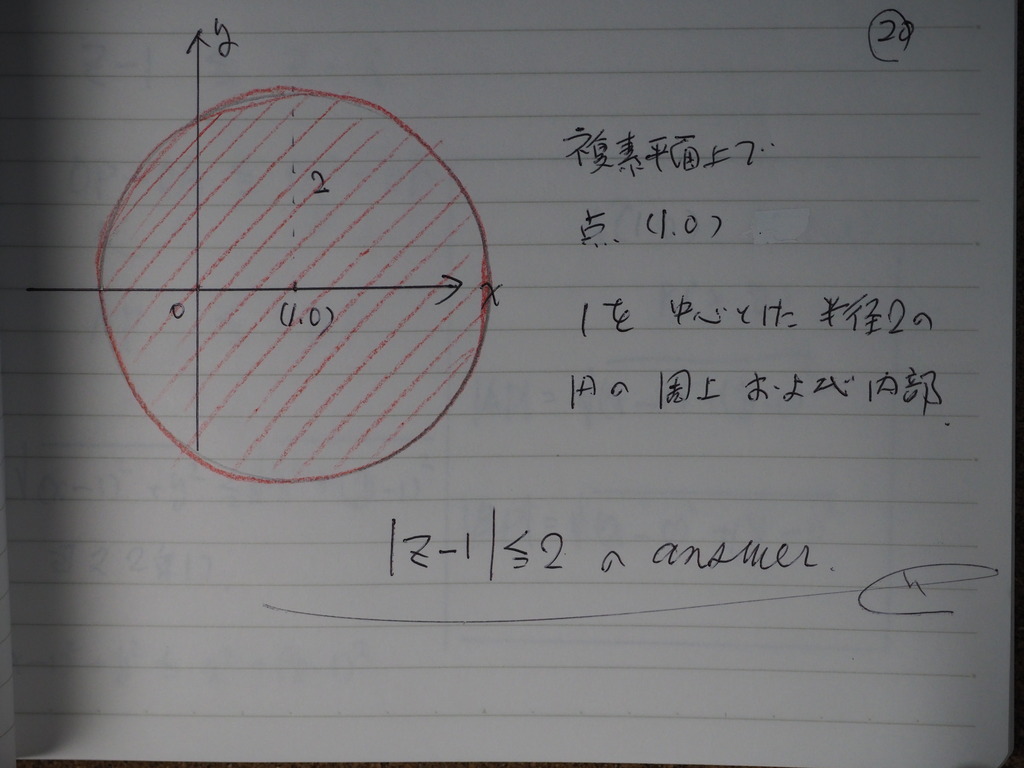 y
20
複素平面上で
2
点(1.0)
x
0
(1.0)
1を中心とした半径2の
円の周上および内部.
|z-1|≦2 の answer.